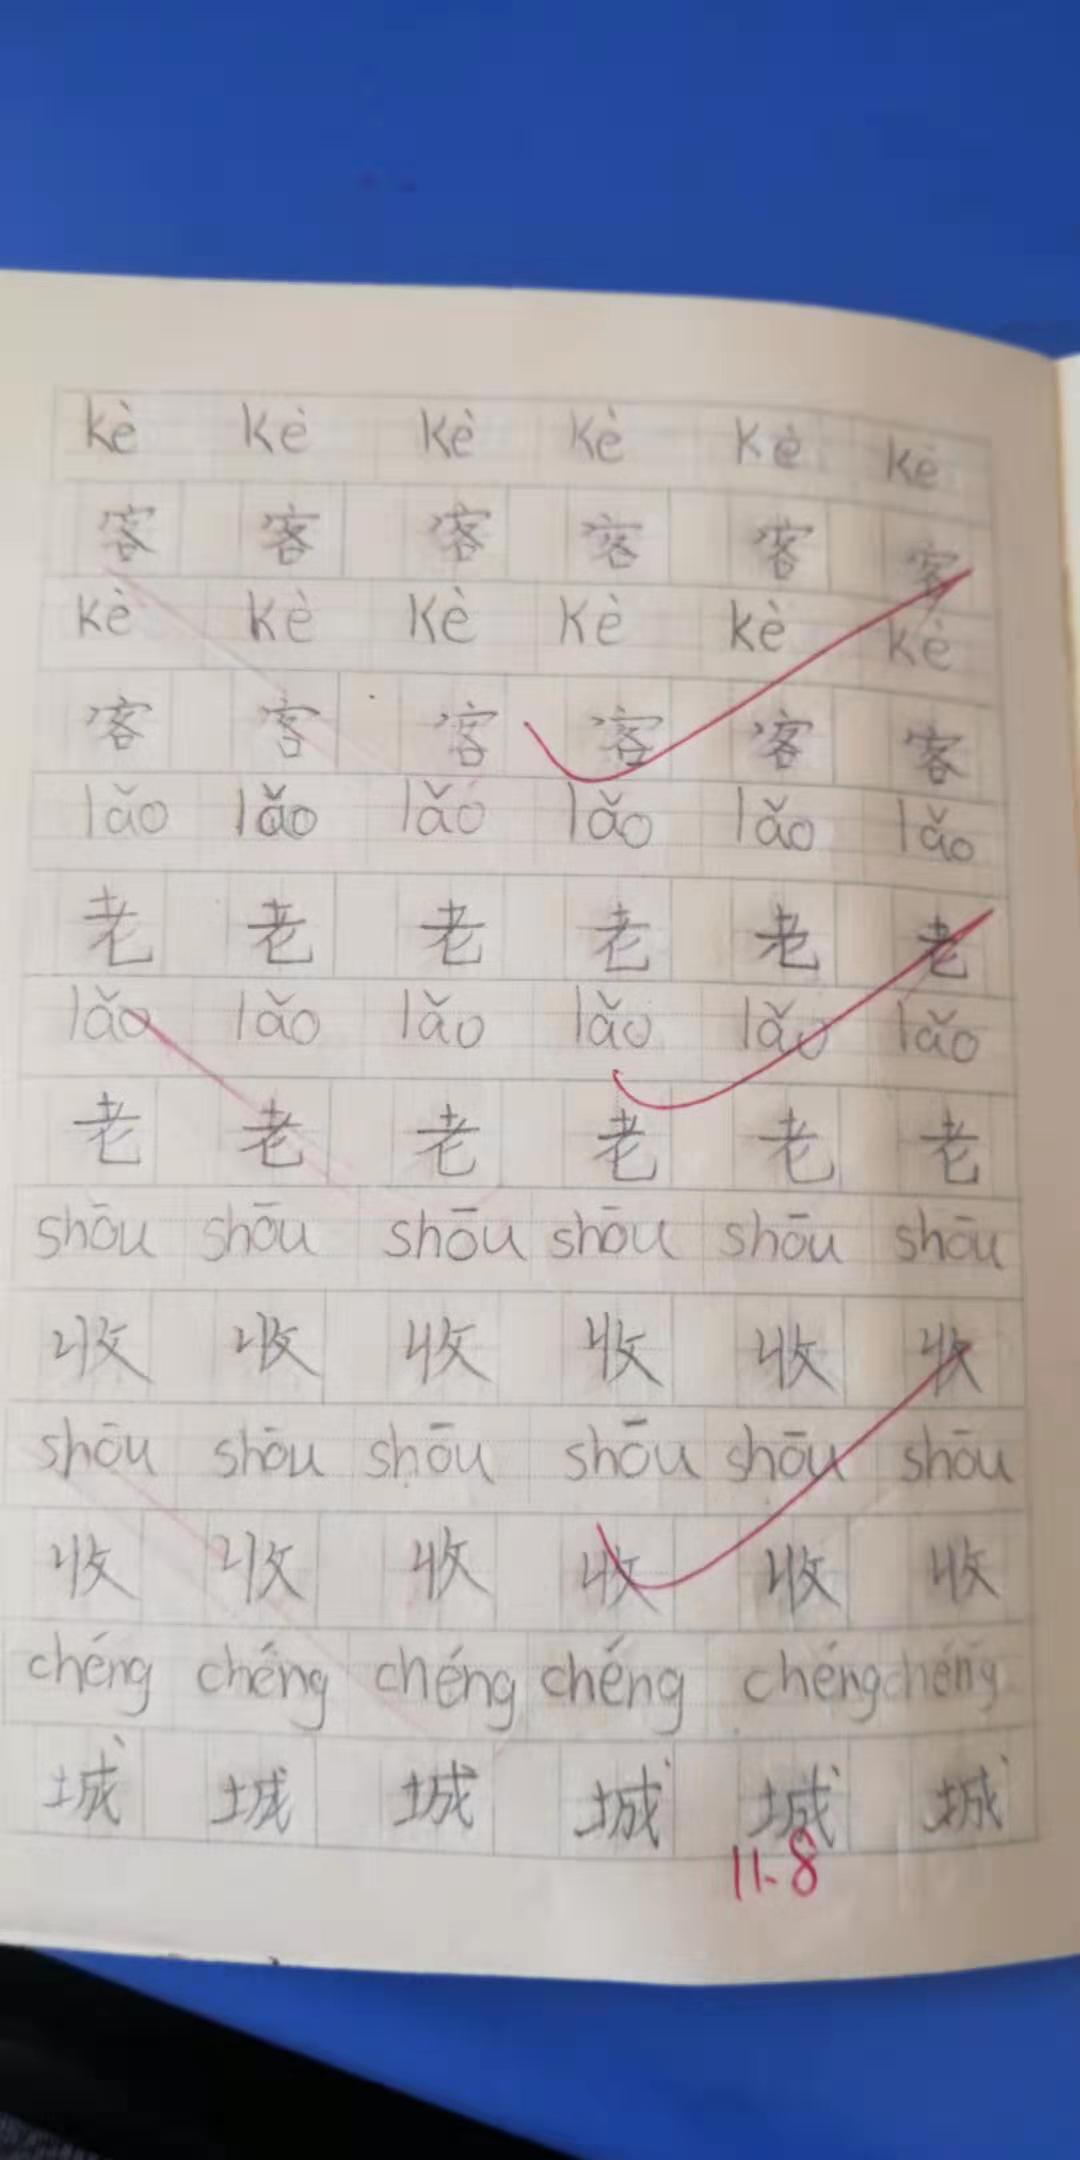 kè kè kè kè kè kè
客 客 客 客 客 客
kè kè kè kè kè kè
客 客 客 客 客 客
lǎo lǎo lǎo lǎo lǎo lǎo
老 老 老 老 老 老
lǎo lǎo lǎo lǎo lǎo lǎo
老 老 老 老 老 老
shōu shōu shōu shōu shōu shōu
收 收 收 收 收 收
shōu shōu shōu shōu shōu shōu
收 收 收 收 收 收
chéng chéng chéng chéng chéng chéng
城 城 城 城 城 城
11.8